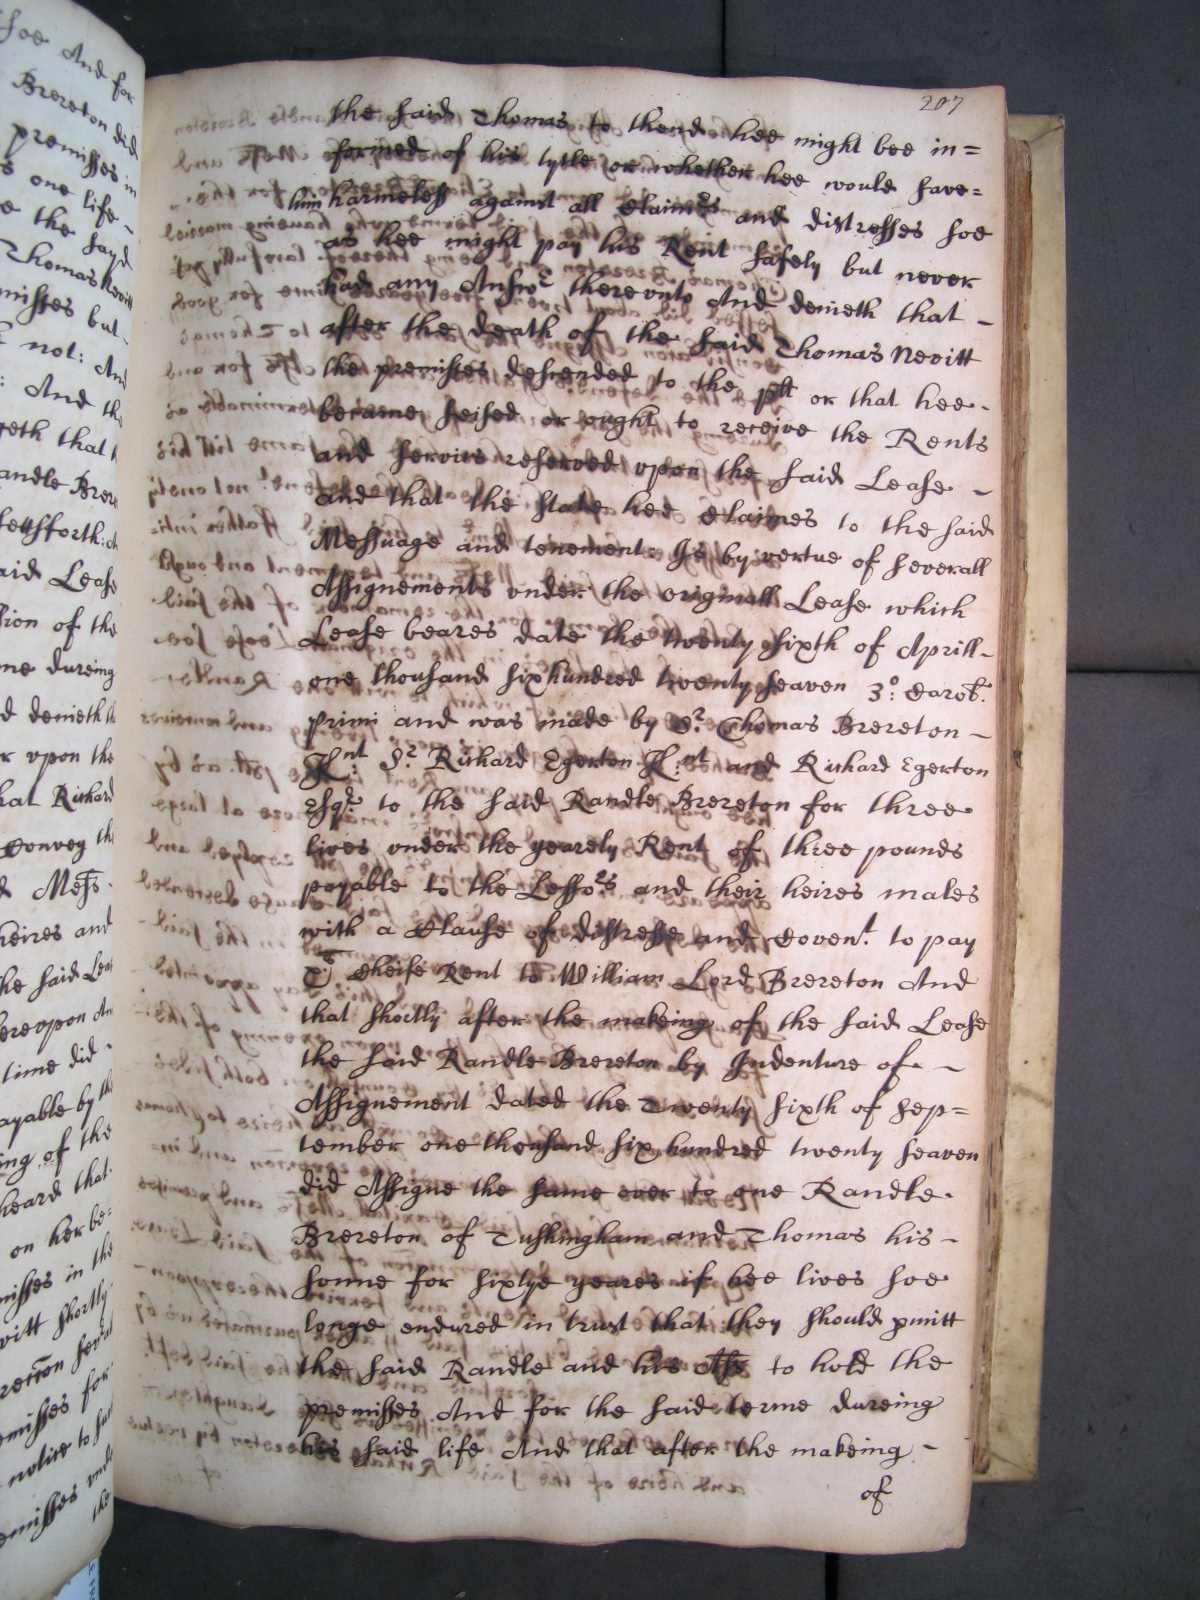 207
the said Thomas to thend hee might bee in=
formed of his tytle or whether hee would save=
him harmeless against all Claimes and distresses soe
as hee might pay his Rent safely but never
had any Answr therevnto And denieth that -
after the death of the said Thomas Nevitt
the premisses descended to the plt or that hee -
became seised or ought to receive the Rents
and services reserved vpon the said Lease -
and that the state hee Claimes to the said
Messuage and tenement Is by vertue of severall
Assignements vnder the originall Lease which
Lease beares date the twenty sixth of Aprill -
one thousand sixhundred twenty seaven 3o: Carol:
primi and was made by Sr. Thomas Brereton -
Knt: Sr Richard Egerton K:nt and Richard Egerton
Esqr. to the said Randle Brereton for three
lives vnder the yearely Rent of three pounds
payable to the Lessors and their heires males
with a Clause of distresse and Covent. to pay
Cheife Rent to William Lord Brereton And
that shortly after the makeing of the said Lease
the said Randle Brereton by Indenture of -
Assignement dated the Twenty sixth of Sep=
tember one thousand six hundred twenty seaven
did Assigne the same over to one Randle
Brereton of Tushingham and Thomas his -
sonne for sixtye yeares if hee lives soe
longe endured in trust that they should pmitt
the said Randle and his Ass to hold the
premisses And for the said terme dureing
his said life And that after the makeing -
of
soe And for
Brereton did
premisses in
s one life -
the sayd
Thomas Nevitt
misses but
not: And
And the
eth that
andle Brere
settsforth:
aid Lease
sion of the
me dureing
d denieth th
r vpon the
hat Richard
Convey th
d Mess.
heires and
he said Lea
ereopon An
time did -
ayable by the
ing of the
heard that
on her be=
misses in the
vitt shortly
rereton sev
emisses for
notice to
emisses vnde
the